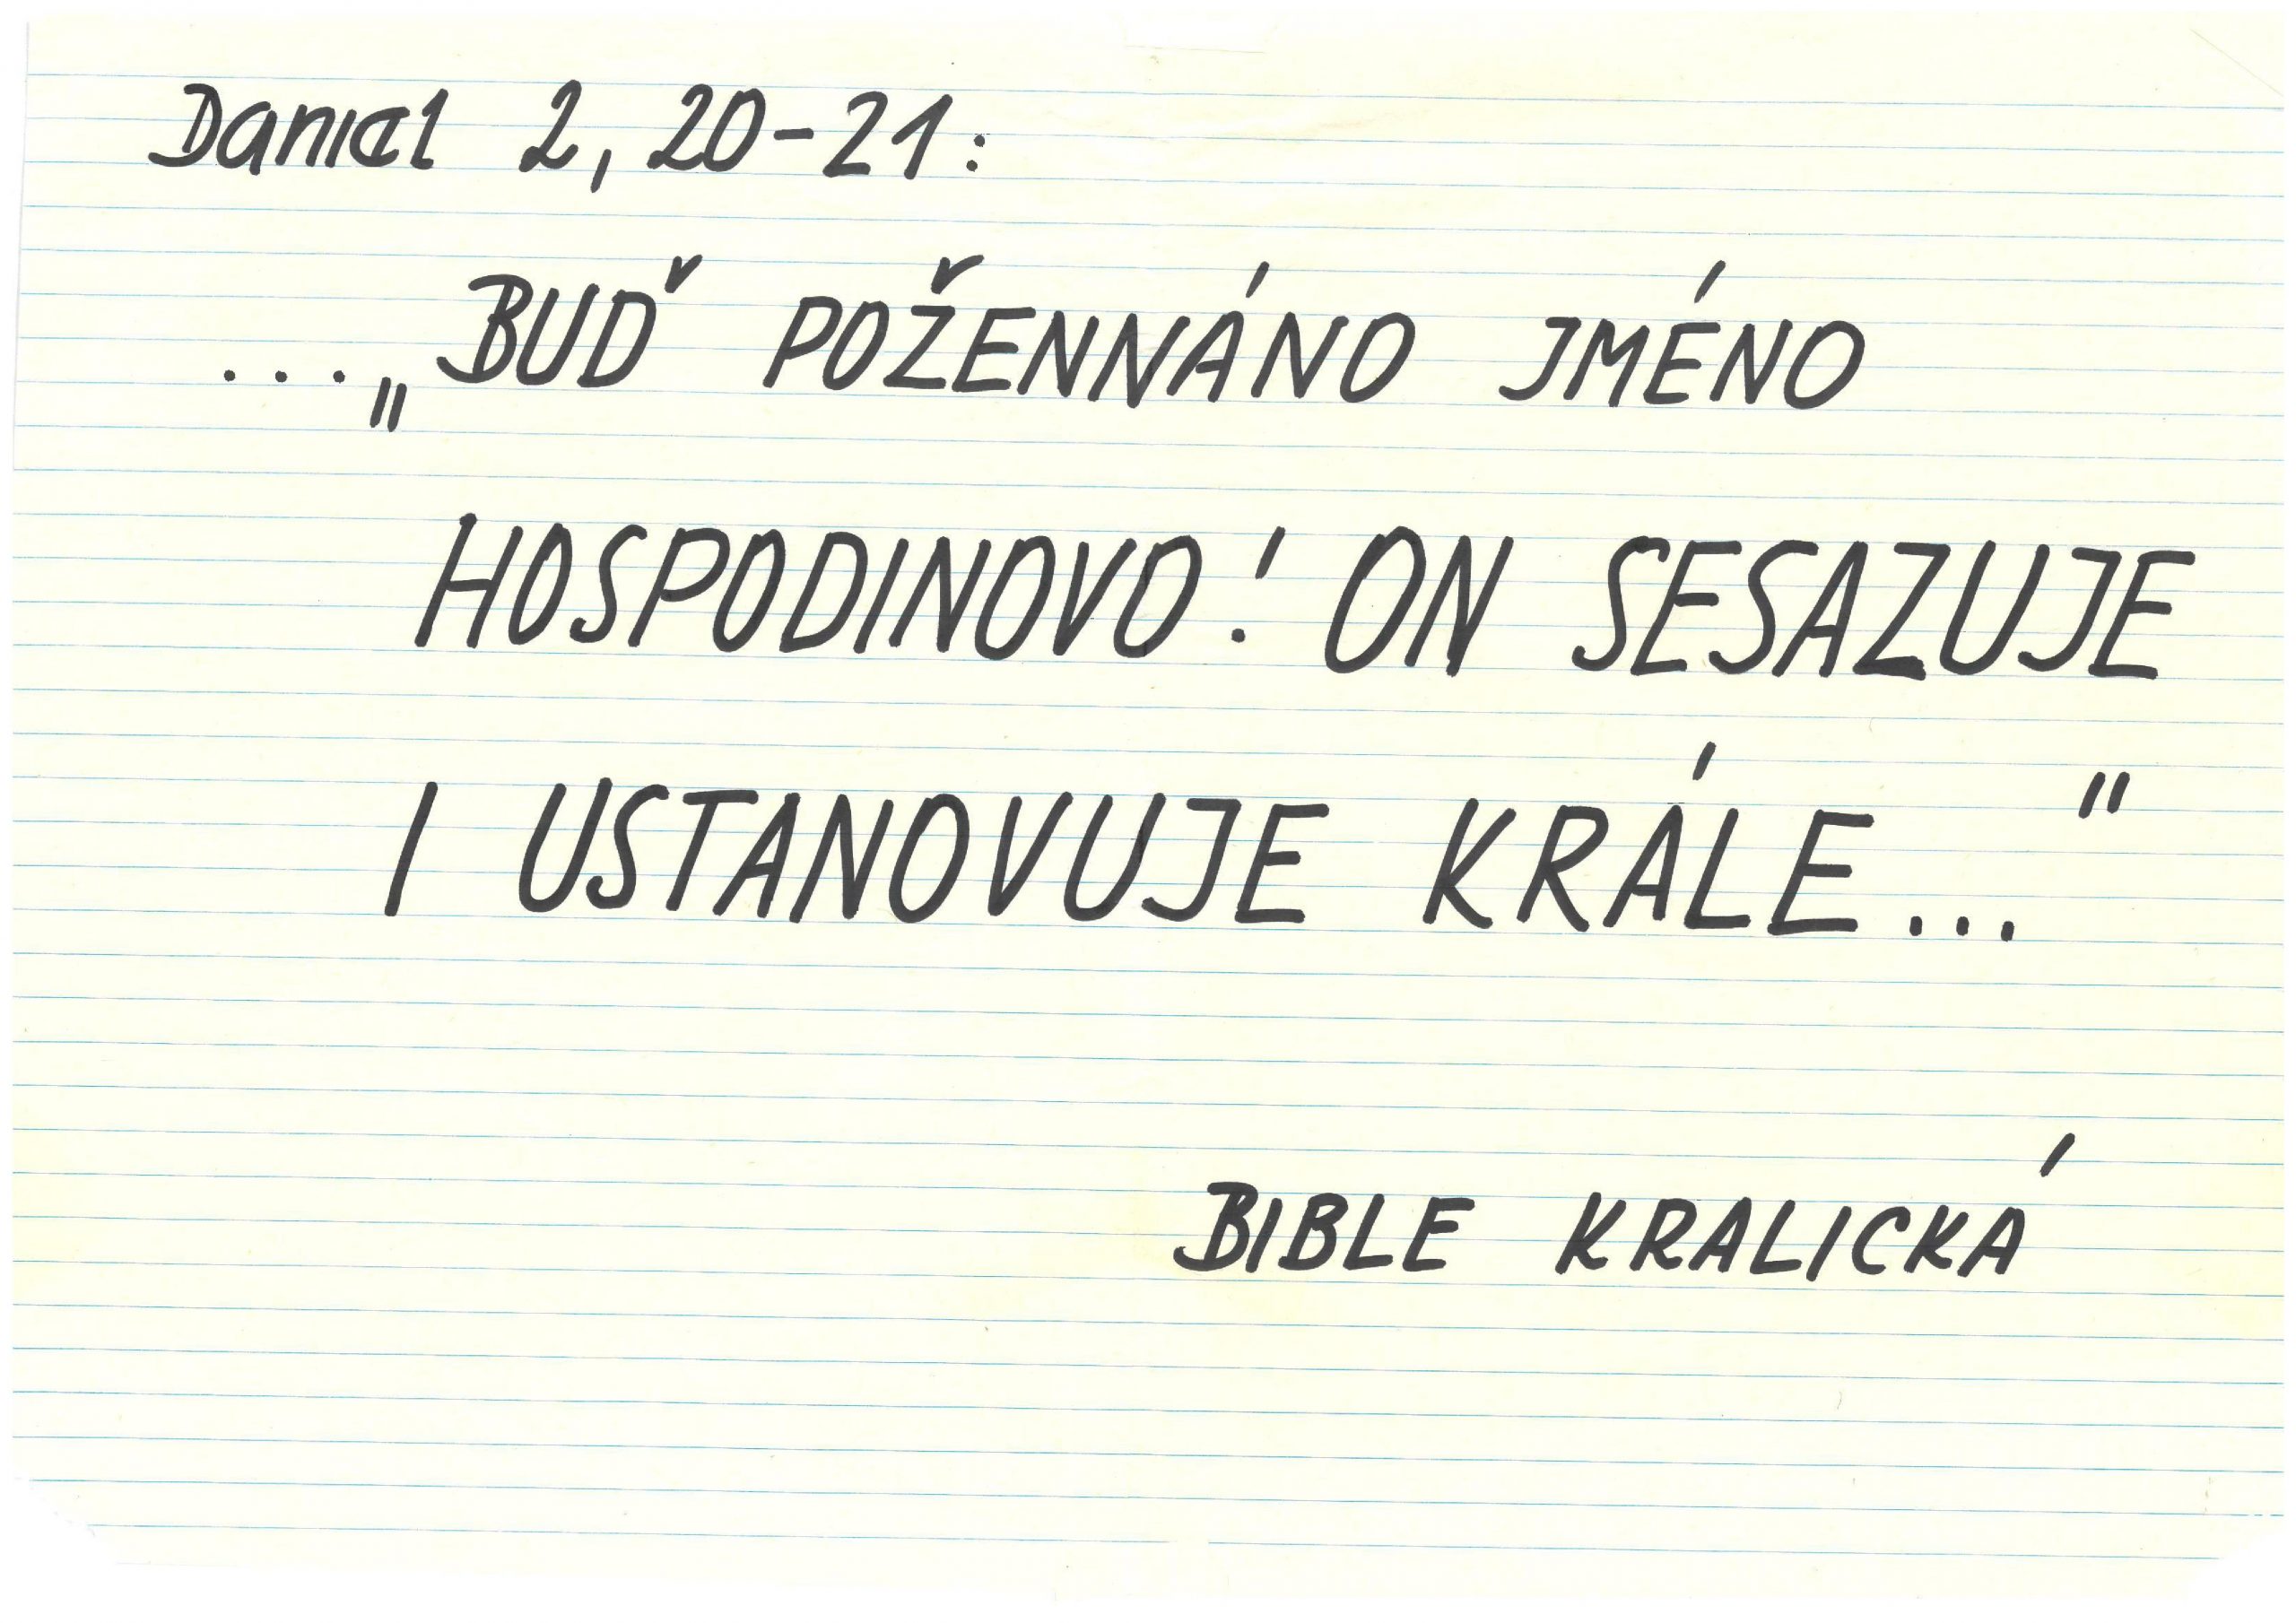 Daniel 2, 20-21:
...„BUĎ POŽENNÁNO JMÉNO
HOSPODINOVO! ON SESAZUJE
I USTANOVUJE KRÁLE..."
BIBLE KRALICKÁ